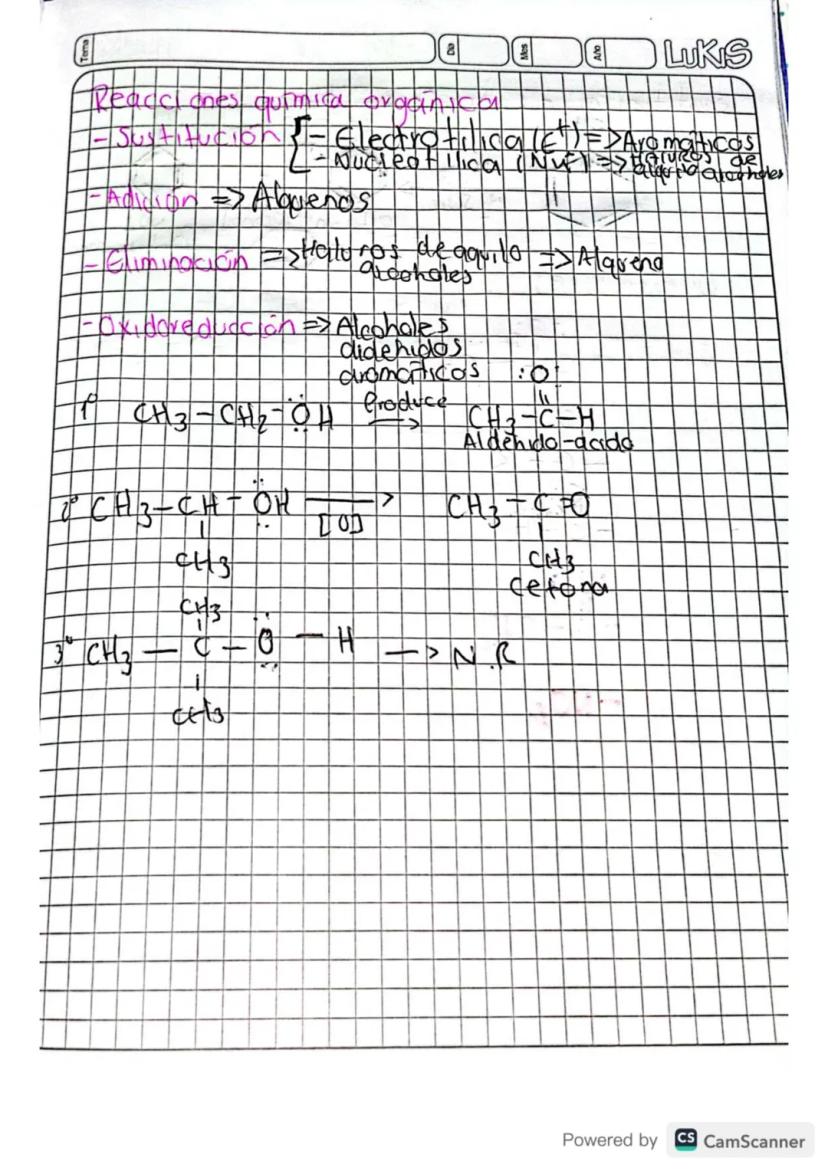 Tema
Dia
Mes
Año
LUKIS
Reacciones química orgánica
- Sustitución { - Electrofílica (E+) => Aromáticos
- Nucleofílica (Nu:) => Haluros de alquilo alcoholes
- Adición => Alquenos
- Eliminación => Haluros de aquilo => Alqueno
alcoholes
- Oxidoreducción => Alcoholes
aldehidos
aromáticos :O:
1° CH3-CH2-ÖH Produce → CH3-C-H
Aldehido-acido
2° CH3-CH-ÖH → [O] CH3-C=O
CH3 CH3
cetona
CH3
3° CH3 - C - O - H → N.R
CH3
Powered by CS CamScanner